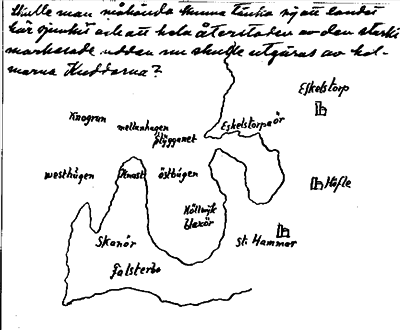 Skulle man måhända kunna tänka sig att landet
här sjunkit och att hela återstoden av den starkt
markerade udden nu skulle utgöras av hol-
marna Kuddarna?
Eskelstorp
Knogran
mellanhagen
flyggenet
Eskelstorpsör
westhügen
Knast
östhügen
Höfle
Skanör
St. Hammar
Falsterbo